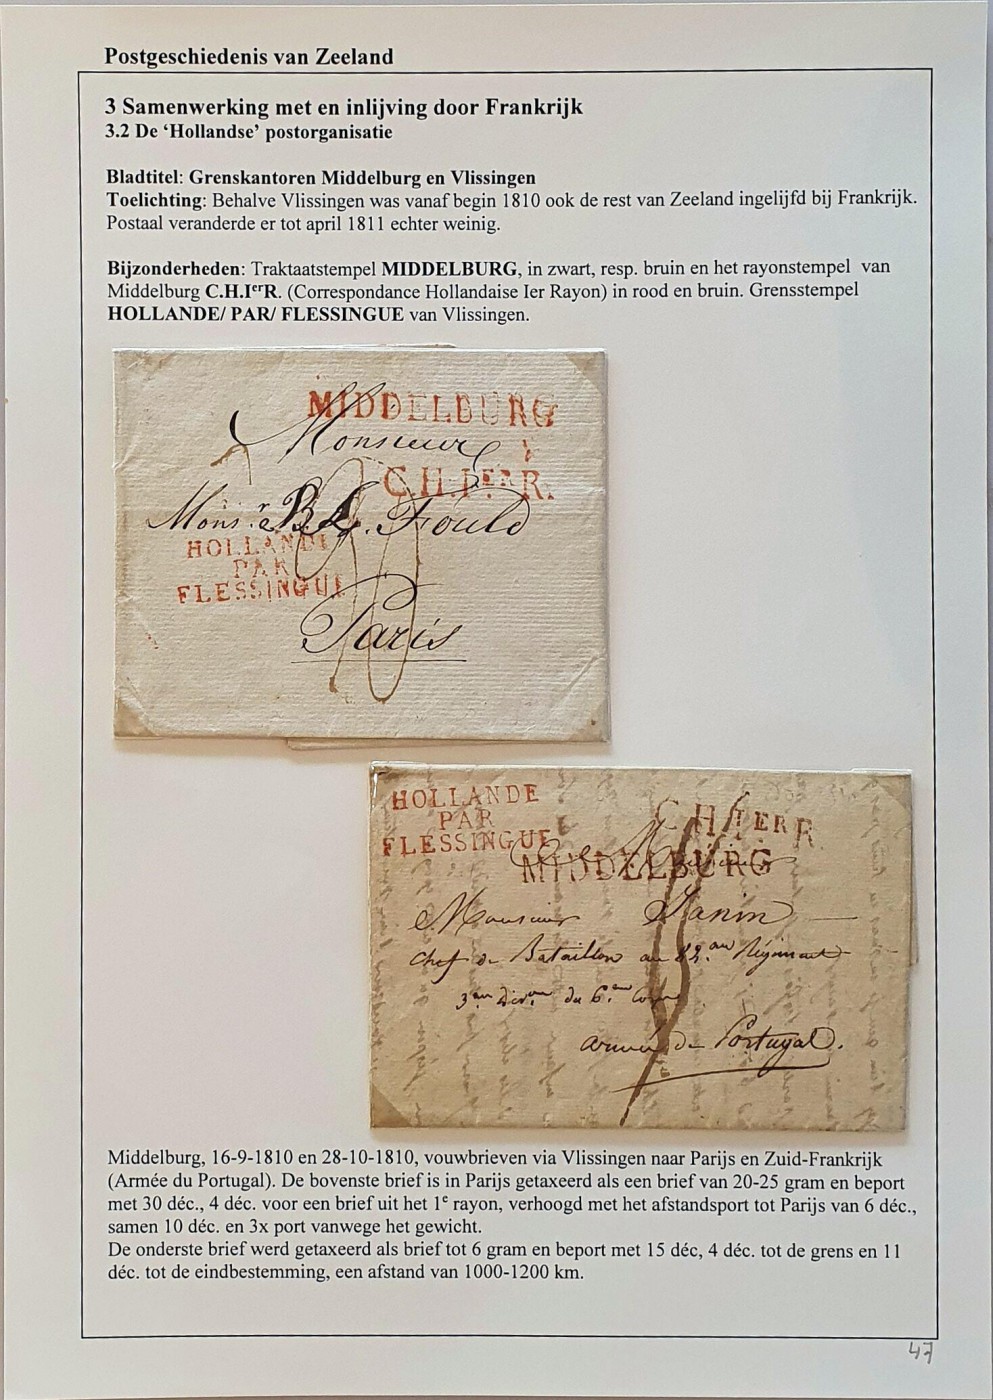 Postgeschiedenis van Zeeland
3 Samenwerking met en inlijving door Frankrijk
3.2 De ‘Hollandse’ postorganisatie
Bladtitel: Grenskantoren Middelburg en Vlissingen
Toelichting: Behalve Vlissingen was vanaf begin 1810 ook de rest van Zeeland ingelijfd bij Frankrijk.
Postaal veranderde er tot april 1811 echter weinig.
Bijzonderheden: Traktaatstempel MIDDELBURG, in zwart, resp. bruin en het rayonstempel van
Middelburg C.H.IerR. (Correspondance Hollandaise Ier Rayon) in rood en bruin. Grensstempel
HOLLANDE/ PAR/ FLESSINGUE van Vlissingen.
MIDDELBURG
Monsieur
C.H.IerR.
Monsr. B. L. Fould
HOLLANDE
PAR
FLESSINGUE
Paris
HOLLANDE
PAR
FLESSINGUE
C H IERR
MIDDELBURG
Monsieur Janin
Chef de Bataillon au 82.me Régiment
3me Divon du 6.me Corps
armée de Portugal.
Middelburg, 16-9-1810 en 28-10-1810, vouwbrieven via Vlissingen naar Parijs en Zuid-Frankrijk
(Armée du Portugal). De bovenste brief is in Parijs getaxeerd als een brief van 20-25 gram en beport
met 30 déc., 4 déc. voor een brief uit het 1e rayon, verhoogd met het afstandsport tot Parijs van 6 déc.,
samen 10 déc. en 3x port vanwege het gewicht.
De onderste brief werd getaxeerd als brief tot 6 gram en beport met 15 déc, 4 déc. tot de grens en 11
déc. tot de eindbestemming, een afstand van 1000-1200 km.
47